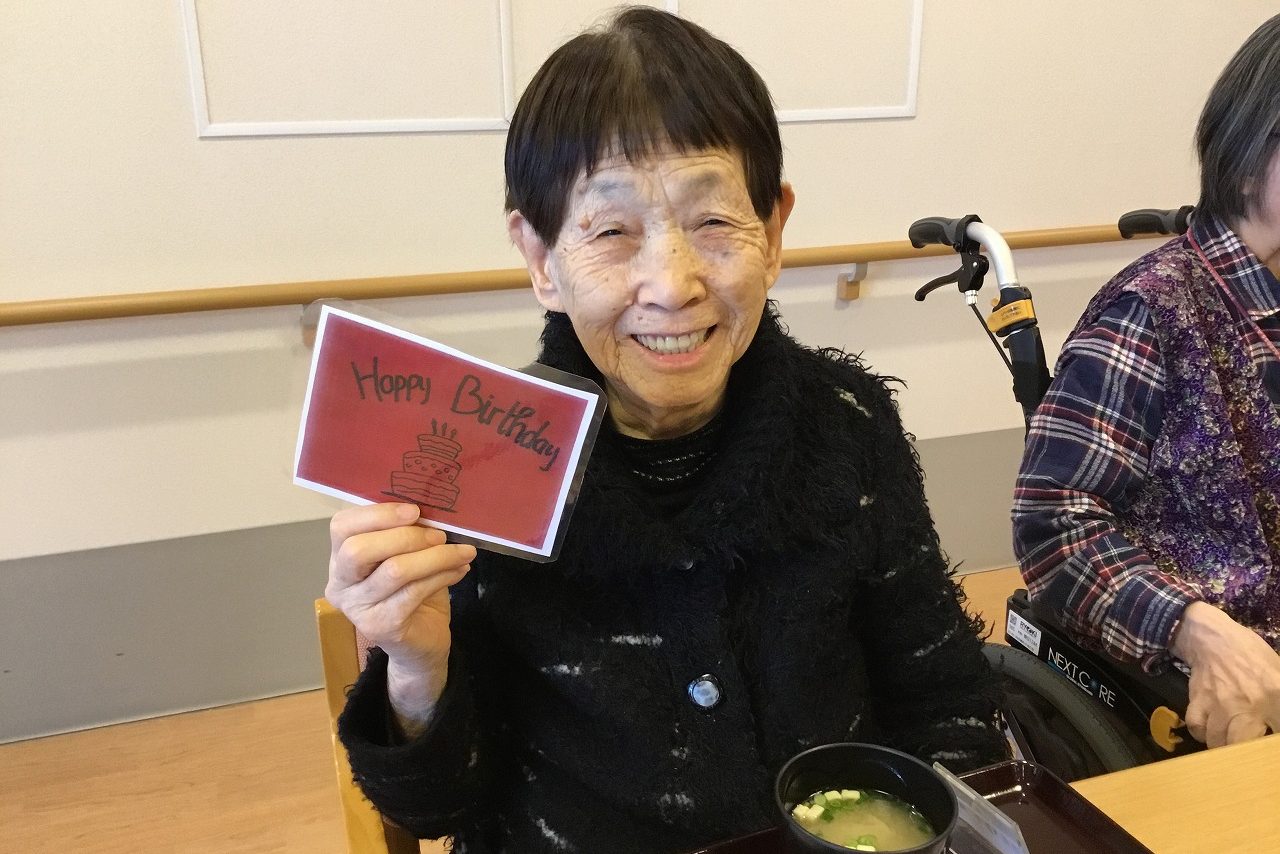 Happy Birthday
NEXT CORE